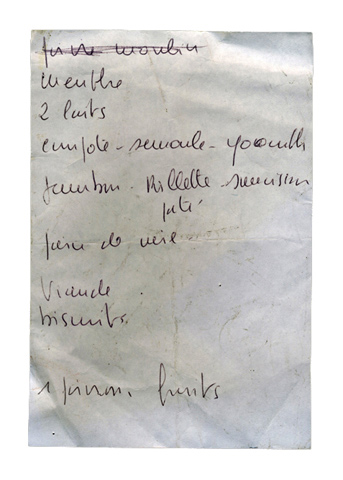 menthe
2 laits
compote - semoule - yaourth
Jambon - Rillette - saucisson
paté
de
Viande
biscuits.
1 fruits